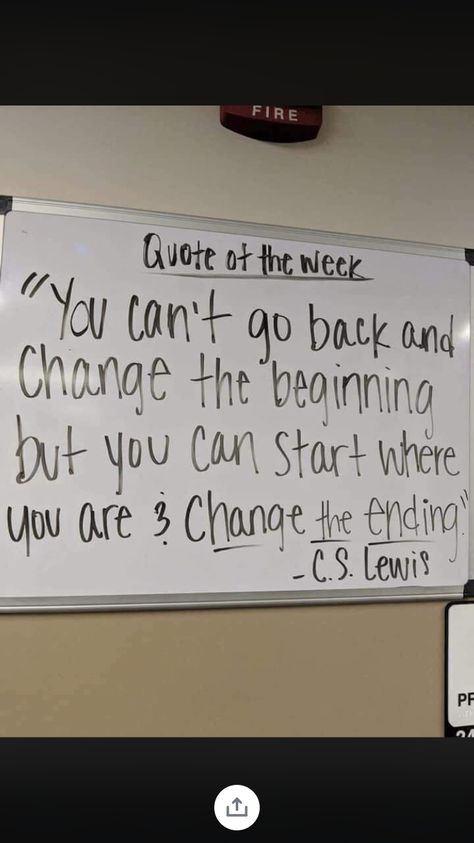 FIRE
Quote of the Week
"You can't go back and
change the beginning
but you can start where
you are & change the ending."
-C.S. Lewis